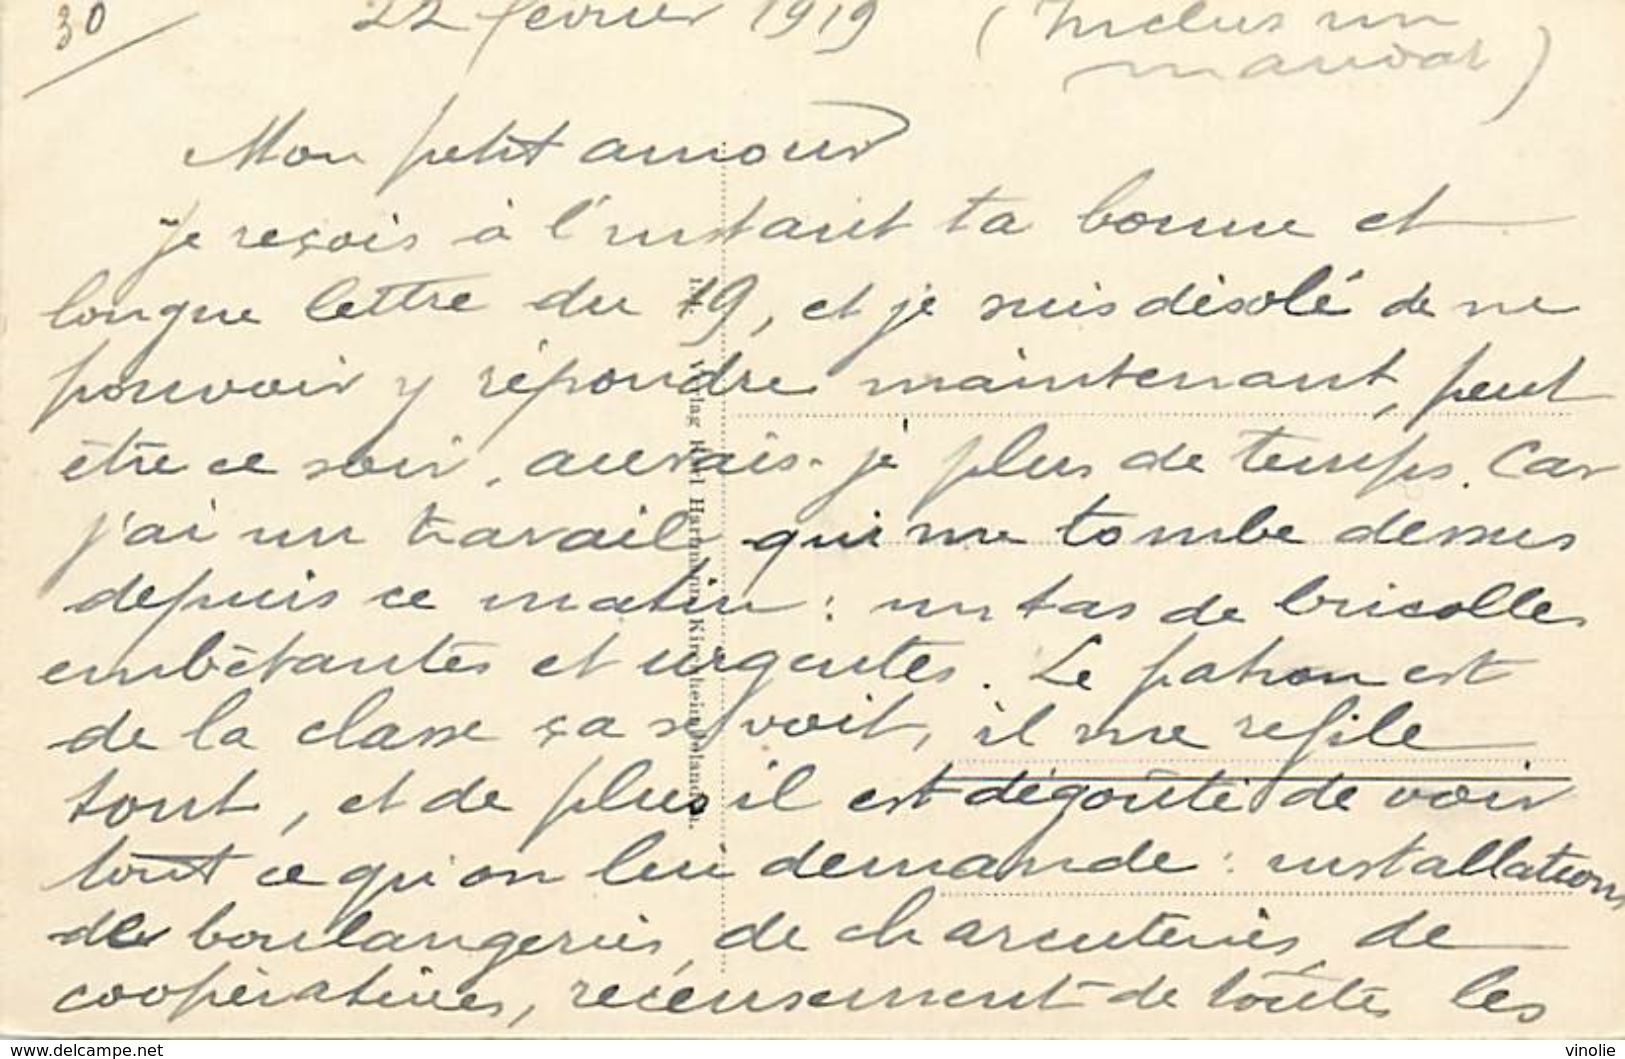 30
22 février 1919
(Inclus un
mandat)
Mon petit amour
Je reçois à l'instant ta bonne et
longue lettre du 19, et je suis désolé de ne
pouvoir y répondre maintenant, peut
être ce soir, aurais-je plus de temps. Car
j'ai un travail qui me tombe dessus
depuis ce matin : un tas de bricolles
embêtantes et urgentes. Le patron est
de la classe ça se voit, il me refile
tout, et de plus il est dégoûté de voir
tout ce qu'on lui demande : installations
de boulangeries, de charcuteries, de
coopératives, recensement de toutes les
Verlag Karl Hartmann, Kirchheimbolanden.
www.delcampe.net
vinolie